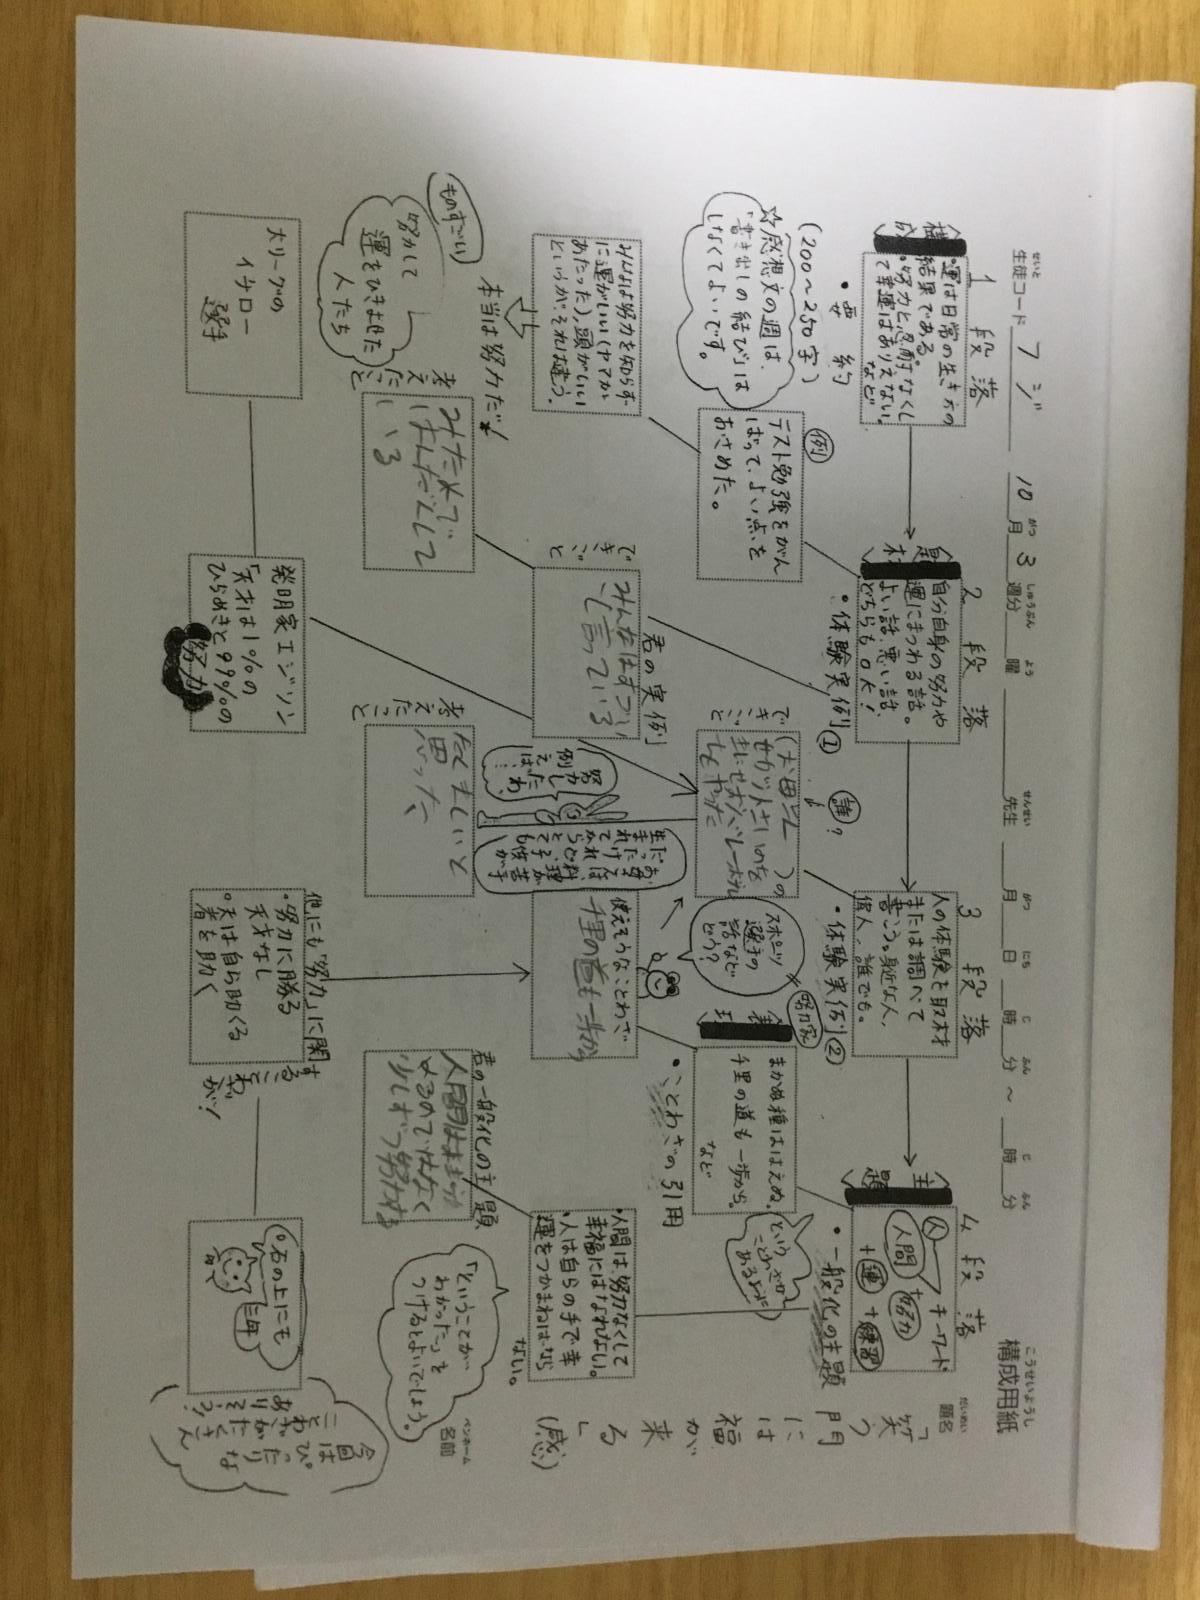 構成用紙
こうせいようし
題名
だいめい
「笑う
門
には
福
が
来
る」
(感)
ペンネーム
名前
生徒コード フジ
せいと
10月3週分 曜 先生 月 日 時 分 ～ 時 分
1 段落
・運は日常の生き方の
結果である。
・努力と忍耐なくし
て幸運はありえない。
など
・要約
(200～250字)
☆感想文の週は、
「書き出しの結び」は
しなくてよいです。
2 段落
題材
自分自身の努力や
運にまつわる話。
よい話、悪い話、
どちらもOK!
・体験実例①
例
テスト勉強をがん
ばって、よい点を
おさめた。
みんなは努力を知らず
に運がいい(ヤマが
あたった)、頭がいい
というが、それは違う。
本当は努力だ!
ものすごい
努力して
運をひきよせた
人たち
大リーグの
イチロー
選手
できごと
君の実例
みんなはずっと
言っている
考えたこと
発明家エジソン
「天才は1%の
ひらめきと99%の
努力」
3 段落
人の体験を取材
または調べて
書こう。身近な人、
偉人、誰でも。
・体験実例②
誰?
できごと
スポーツ
選手の
話など
どう?
努力家
お母さんは、料理が苦手
だったけれど、子供が
生まれてからとても
努力し
たわ、
例え
ば…
考えたこと
たくましいと
思った
4 段落
主題
キーワード
人間
+努力
+運
+練習
・一般化の主題
表現
まかぬ種ははえぬ。
千里の道も一歩から。
など
・ことわざの引用
という
ことわざが
あるように
使えそうなことわざ
千里の道も一歩から
・人間は、努力なくして
幸福にはなれない。
・人は自らの手で幸
運をつかまねばなら
ない。
君の一般化の主題
「ということが
わかった」を
つけるとよいでしょう。
他にも「努力」に関することわざが!
・努力に勝る
天才なし
・天は自ら助くる
者を助く
・石の上にも
三年
今回は
ぴったりな
ことわざがたくさん
ありそう!